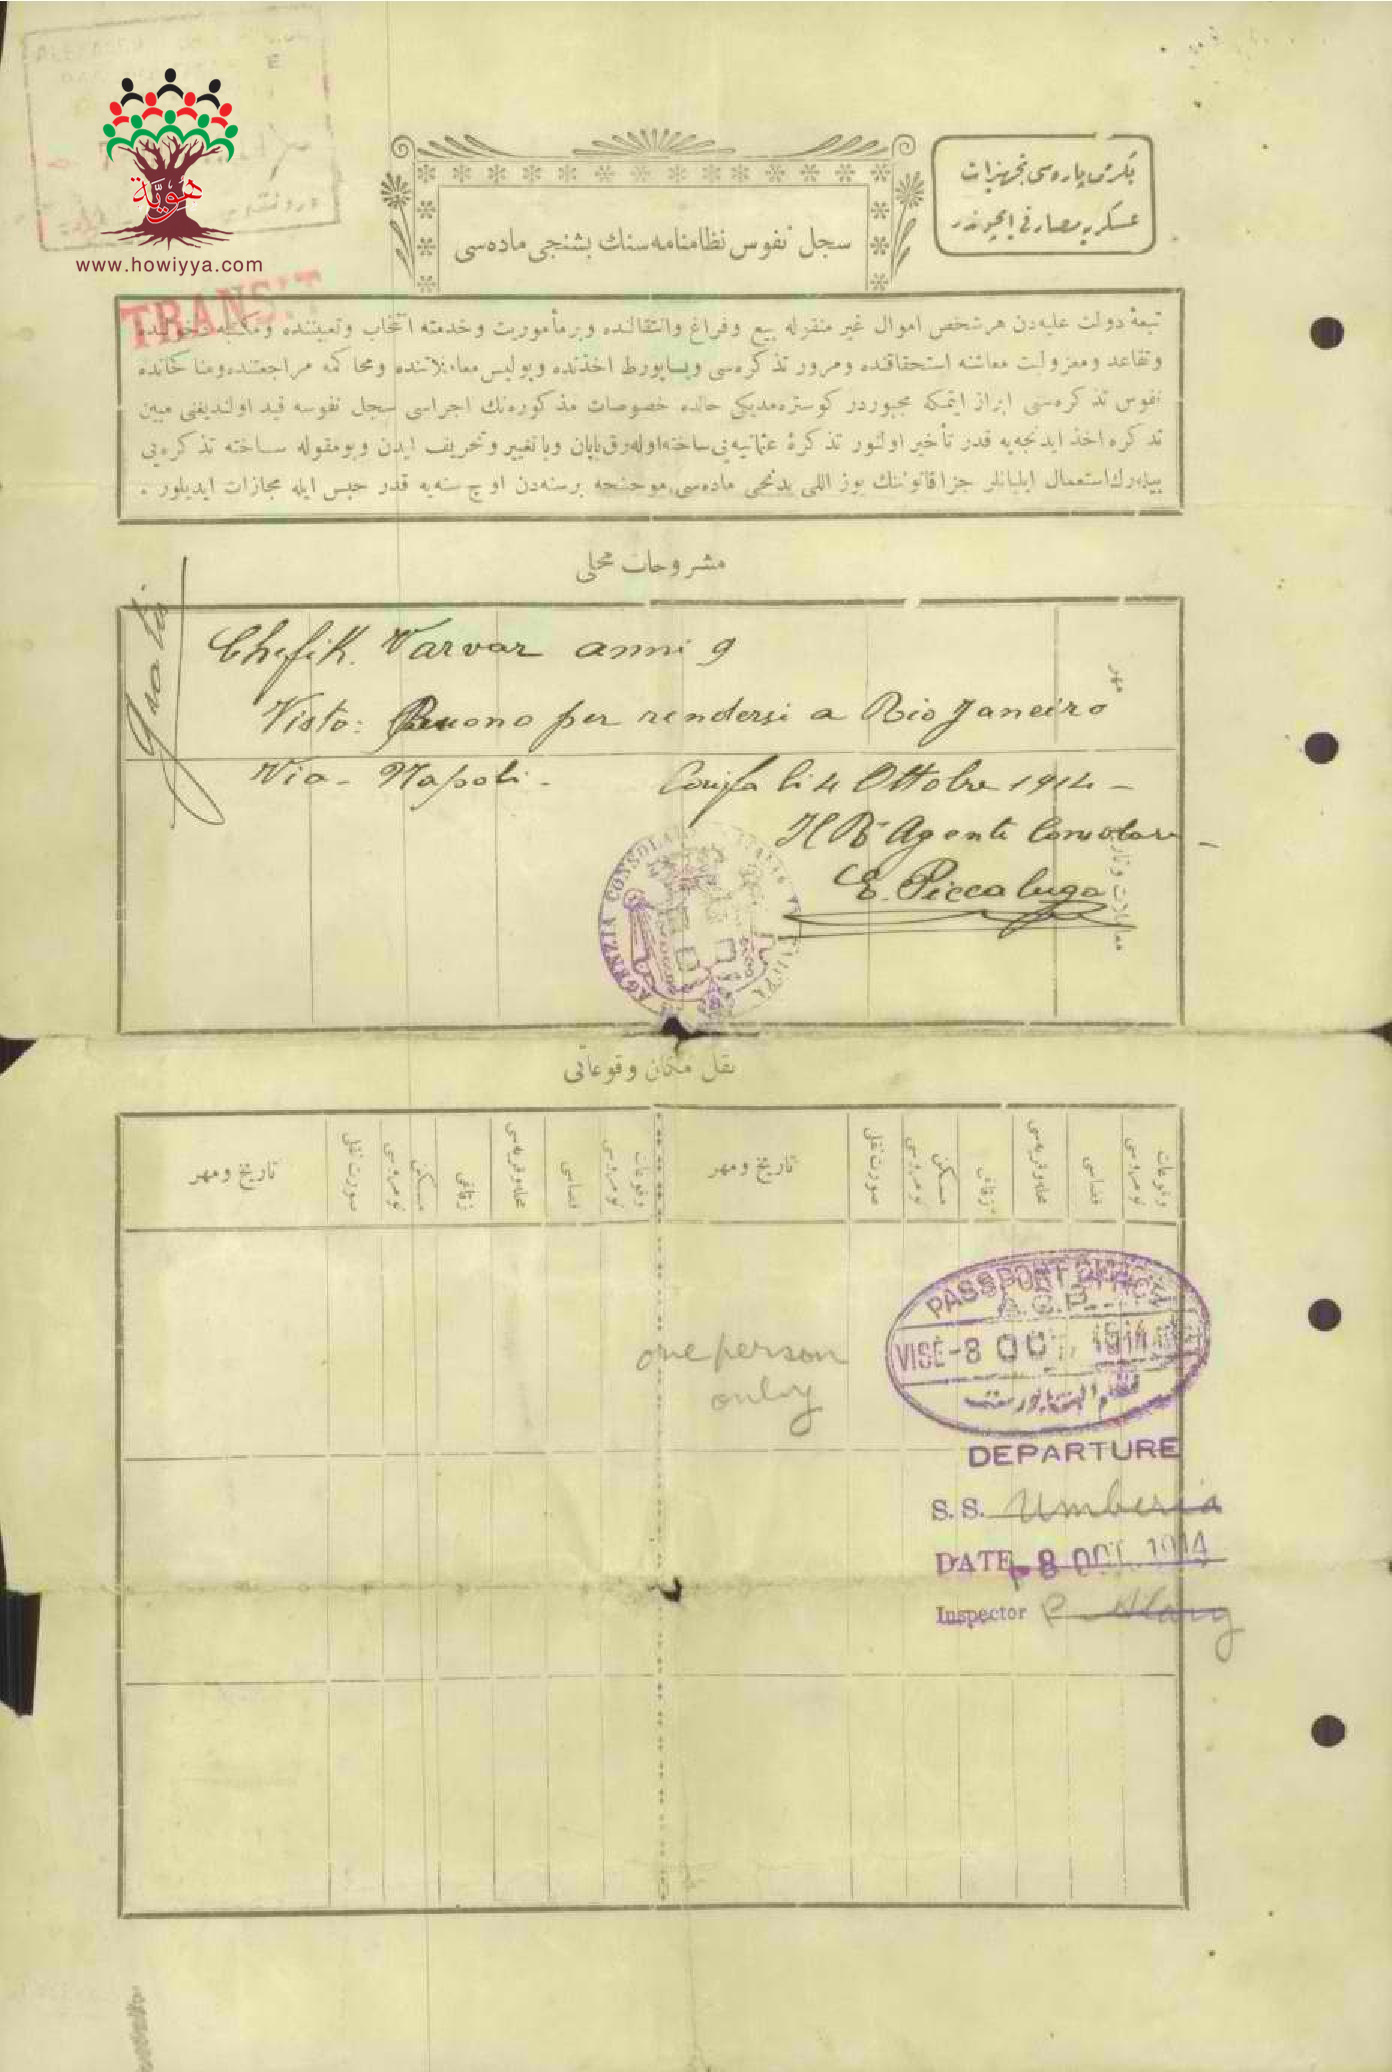 هوية
www.howiyya.com
TRANSIT
يكرمى پاره‌سى تجهيزات
عسكريه مصارفى ايچوندر
سجل نفوس نظامنامه سنك بشنجى ماده‌سى
تبعهٔ دولت عليه‌دن هر شخص اموال غير منقوله بيع وفراغ وانتقالنده وبر مأموريت وخدمته انتخاب وتعييننده ومكتبه دخولنده
وتقاعد ومعزوليت معاشنه استحقاقنده ومرور تذكره‌سى وپساپورط اخذنده وپوليس معاملاتنده ومحاكمه مراجعتنده ومناكحاتده
نفوس تذكره‌سنى ابراز ايتمكه مجبوردر كوستره‌مديكى حالده خصوصات مذكوره‌نك اجراسى سجل نفوسه قيد اولنديغنى مبين
تذكره اخذ ايدنجه‌يه قدر تأخير اولنور تذكرهٔ عثمانيه‌يى ساخته اوله‌رق ياپان ويا تغيير وتحريف ايدن وبومقوله ساخته تذكره‌يى
بيله‌رك استعمال ايليانلر جزا قانوننك يوز اللى يدنجى ماده‌سى موجبنجه برسنه‌دن اوچ سنه‌يه قدر حبس ايله مجازات ايديلور .
مشروحات محلى
Gratis
Chefik Varvar anni 9
Visto: Buono per rendersi a Rio Janeiro
Via - Napoli - Caifa li 4 Ottobre 1914 -
Il Rº Agente Consolare -
E. Piccaluga
AGENZIA CONSOLARE
مهر
نقل مكان وقوعاتى
وقوعات نومروسى
قضاسى
محله وقريه‌سى
زقاقى
مسكن نومروسى
صورت نقلى
تاريخ ومهر
وقوعات نومروسى
قضاسى
محله وقريه‌سى
زقاقى
مسكن نومروسى
صورت نقلى
تاريخ ومهر
one person
only
PASSPORT OFFICE
VISÉ -8 OCT. 1914
DEPARTURE
S. S. Umberia
DATE -8 OCT. 1914
Inspector